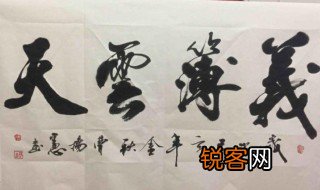 義簿雲天
亥年金秋
锐客网